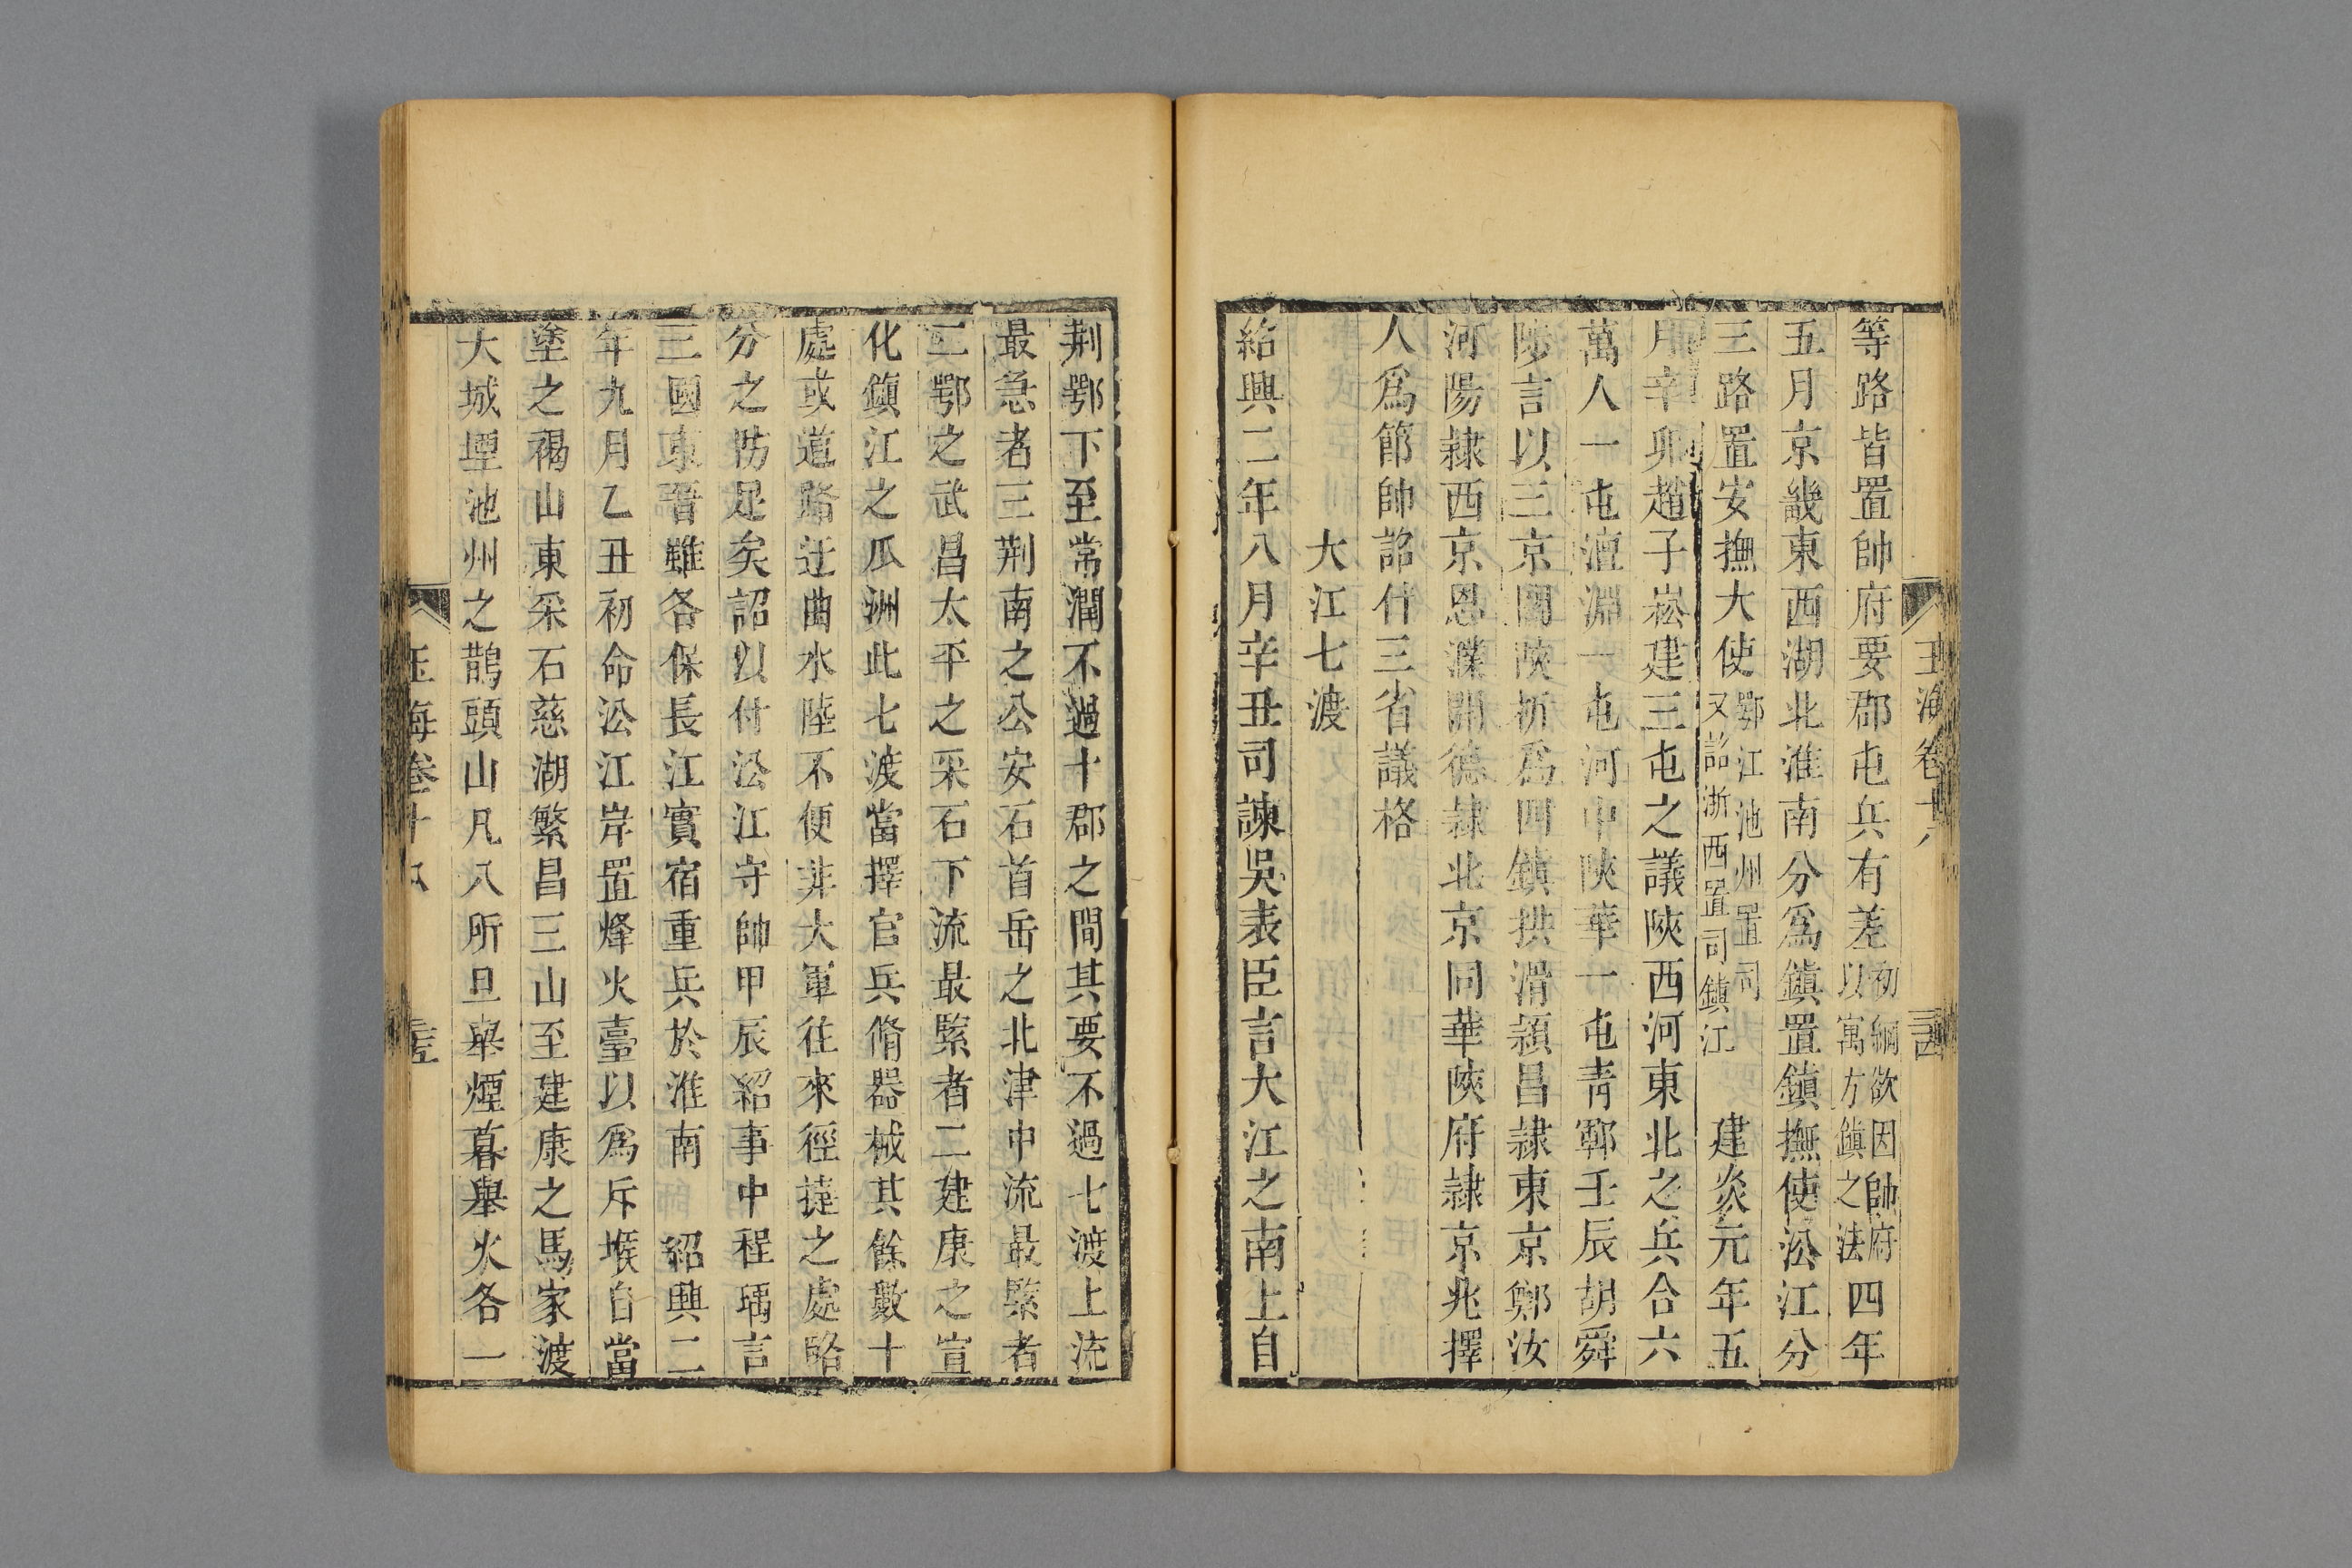 玉海卷十八
等路皆置帥府要郡屯兵有差初綱欲因帥府以寓方鎮之法四年
五月京畿東西湖北淮南分爲鎮置鎮撫使沿江分
三路置安撫大使鄂江池州置司又詔浙西置司鎮江 建炎元年五
月辛卯趙子崧建三屯之議陝西河東北之兵合六
萬人一屯澶淵一屯河中陝華一屯青鄆壬辰胡舜
陟言以三京關陝析爲四鎮拱滑潁昌隷東京鄭汝
河陽隷西京恩濮開德隷北京同華陝府隷京兆擇
人爲節帥詔付三省議格
大江七渡
紹興二年八月辛丑司諫吳表臣言大江之南上自
荆鄂下至常潤不過十郡之間其要不過七渡上流
最急者三荆南之公安石首岳之北津中流最緊者
二鄂之武昌太平之采石下流最緊者二建康之宣
化鎮江之瓜洲此七渡當擇官兵脩器械其餘數十
處或道路迂曲水陸不便非大軍往來徑捷之處略
分之防足矣詔以付沿江守帥甲辰給事中程瑀言
三國東晉雖各保長江實宿重兵於淮南 紹興二
年九月乙丑初命沿江岸置烽火臺以爲斥堠自當
塗之褐山東采石慈湖繁昌三山至建康之馬家渡
大城堙池州之鵲頭山凡八所旦舉煙暮舉火各一
玉海卷十八